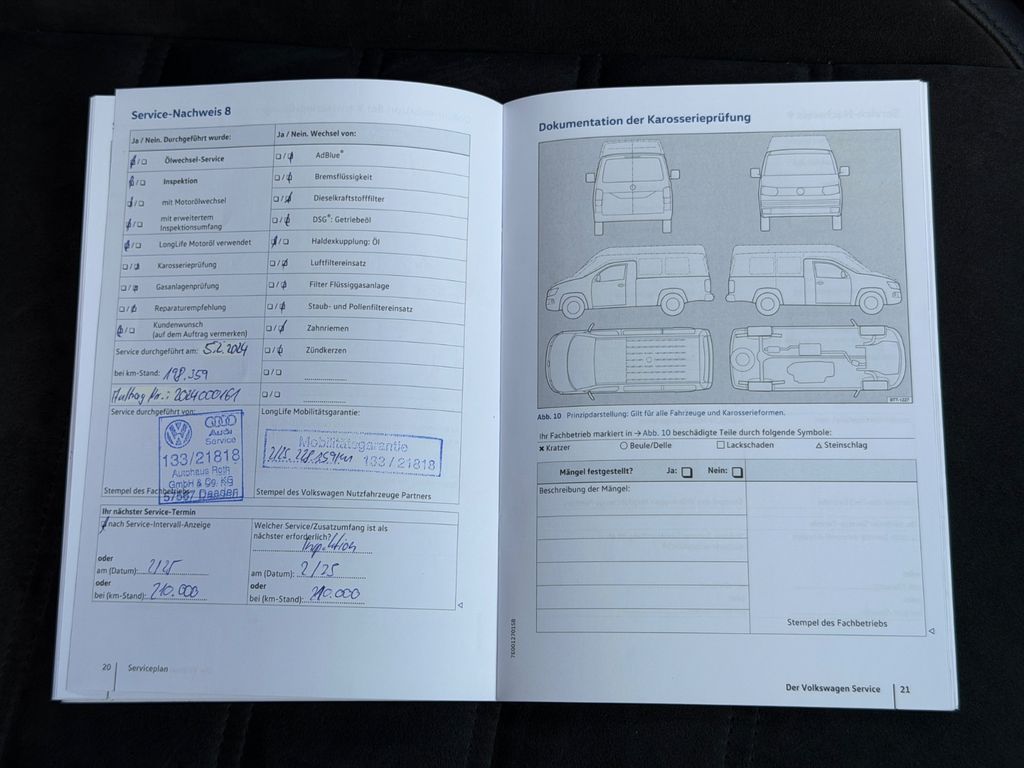 Service-Nachweis 8
Ja / Nein. Durchgeführt wurde:
Ölwechsel-Service
Inspektion
mit Motorölwechsel
mit erweitertem
Inspektionsumfang
LongLife Motoröl verwendet
Karosserieprüfung
Gasanlagenprüfung
Reparaturempfehlung
Kundenwunsch
(auf dem Auftrag vermerken)
Service durchgeführt am: 5.2.2024
bei km-Stand: 198.359
Auftrag Nr.: 2024000161
Ja / Nein. Wechsel von:
AdBlue®
Bremsflüssigkeit
Dieselkraftstofffilter
DSG®: Getriebeöl
Haldexkupplung: Öl
Luftfiltereinsatz
Filter Flüssiggasanlage
Staub- und Pollenfiltereinsatz
Zahnriemen
Zündkerzen
Service durchgeführt von:
Audi
Service
133/21818
Autohaus Roth
GmbH & Co. KG
57567 Daaden
Stempel des Fachbetriebs
LongLife Mobilitätsgarantie:
Mobilitätsgarantie
2/25 228.359km 133/21818
Stempel des Volkswagen Nutzfahrzeuge Partners
Ihr nächster Service-Termin
nach Service-Intervall-Anzeige
oder
am (Datum): 2/25
oder
bei (km-Stand): 210.000
Welcher Service/Zusatzumfang ist als
nächster erforderlich?
Inspektion
am (Datum): 2/25
oder
bei (km-Stand): 210.000
20 Serviceplan
Dokumentation der Karosserieprüfung
BTT-1227
Abb. 10 Prinzipdarstellung: Gilt für alle Fahrzeuge und Karosserieformen.
Ihr Fachbetrieb markiert in → Abb. 10 beschädigte Teile durch folgende Symbole:
✖ Kratzer ○ Beule/Delle □ Lackschaden △ Steinschlag
Mängel festgestellt? Ja: ❑ Nein: ❑
Beschreibung der Mängel:
Stempel des Fachbetriebs
7E0012701SB
Der Volkswagen Service 21